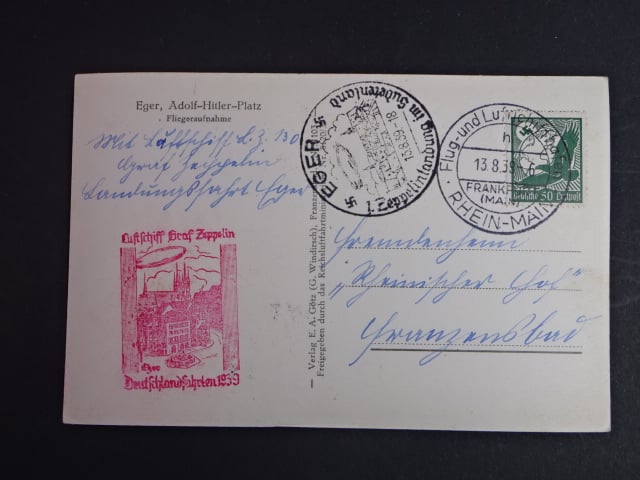 Eger, Adolf-Hitler-Platz
Fliegeraufnahme
Mit Luftschiff L.Z. 130
Graf Zeppelin
Landungsfahrt Eger
Luftschiff Graf Zeppelin
Eger
Deutschlandfahrten 1939
Verlag E. A. Götz (G. Windirsch), Franzens
Freigegeben durch das Reichsluftfahrtmini
EGER 1
Zeppelinlandung im Sudetenland
13.8.39-18
Flug- und Luftschiffhafen
h
13.8.39
FRANKFURT
(MAIN)
RHEIN-MAIN
Deutsche 50 Luftpost
Fremdenheim
„Rheinischer Hof"
Franzensbad